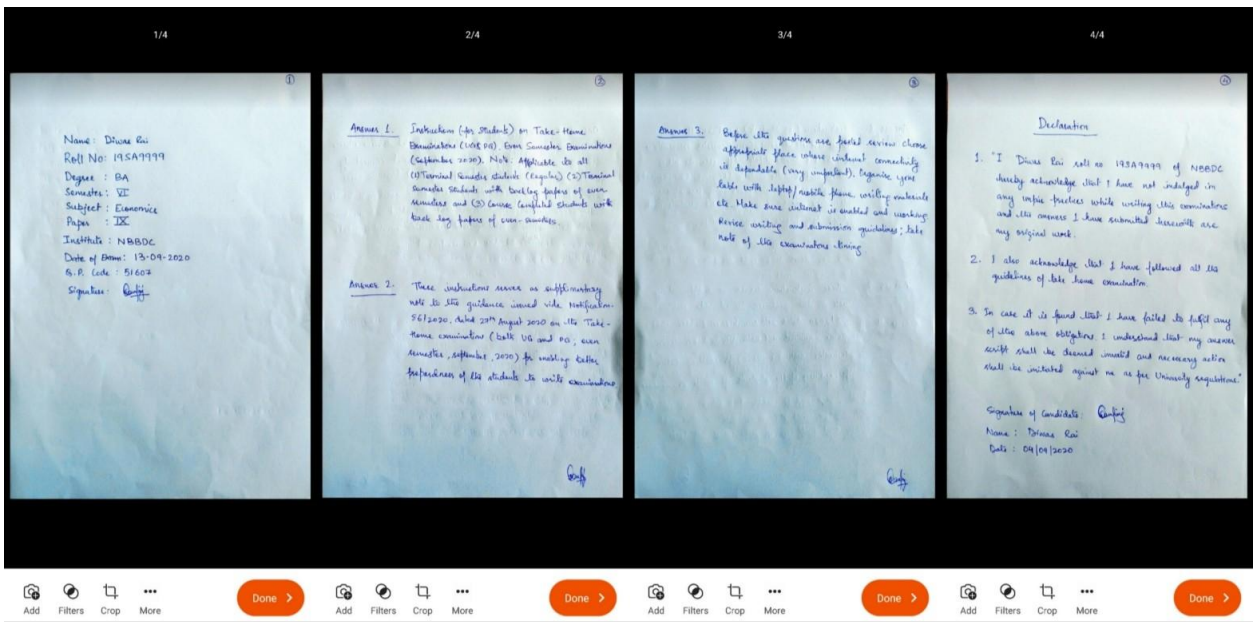 1/4
①
Name: Diwas Rai
Roll No: 19SA9999
Degree: BA
Semester: VI
Subject: Economics
Paper: IX
Institute: NBBDC
Date of Exam: 13-09-2020
Q.P. Code: 51607
Signature:
Add
Filters
Crop
More
Done
2/4
②
Answer 1. Instructions (for Students) on Take-Home
Examinations (UG & PG), Even Semester Examinations
(September 2020). Note: Applicable to all
(1) Terminal Semester students (Regular) (2) Terminal
Semester Students with backlog papers of even-
semesters and (3) Course Completed students with
back log papers of even-semesters.
Answer 2. These instructions serves as supplimentary
note to the guidance issued vide Notification-
56/2020, dated 27th August 2020 on the Take-
Home examination (both UG and PG, even
semester, september, 2020) for enabling better
preparedness of the students to write examinations.
Add
Filters
Crop
More
Done
3/4
③
Answer 3. Before the questions are posted review choose
appropriate place where internet connectivity
is dependable (very important). Organise your
table with laptop/mobile phone writing materials
etc. Make sure internet is enabled and working
Revise writing and submission guidelines; take
note of the examinations timing
Add
Filters
Crop
More
Done
4/4
④
Declaration
1. "I Diwas Rai roll no 19SA9999 of NBBDC
hereby acknowledge that I have not indulged in
any while writing this examinations
and the answers I have submitted herewith are
my original work.
2. I also acknowledge that I have followed all the
guidelines of take home examination.
3. In case it is found that I have failed to fulfil any
of the above obligations I understand that my answer
script shall be deemed invalid and necessary action
shall be initiated against me as per University regulations."
Signature of Candidate:
Name: Diwas Rai
Date: 09/09/2020
Add
Filters
Crop
More
Done